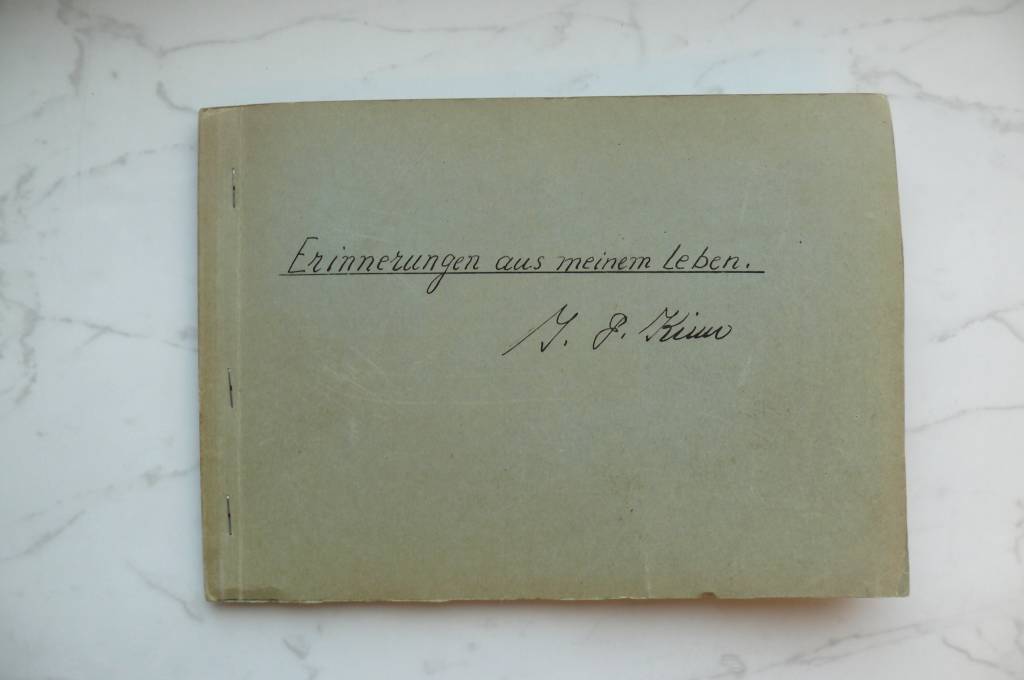 Erinnerungen aus meinem Leben.
J. P.